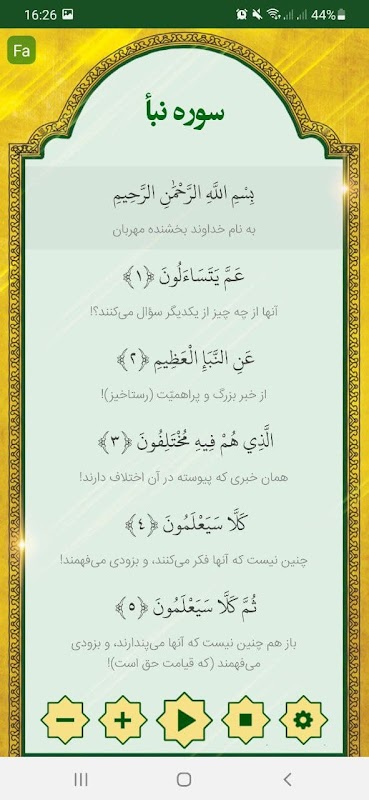 16:26
44%
Fa
سوره نبأ
بِسْمِ اللَّهِ الرَّحْمَٰنِ الرَّحِيمِ
به نام خداوند بخشنده مهربان
عَمَّ يَتَسَاءَلُونَ ﴿١﴾
آنها از چه چیز از یکدیگر سؤال می‌کنند؟!
عَنِ النَّبَإِ الْعَظِيمِ ﴿٢﴾
از خبر بزرگ و پراهمیّت (رستاخیز)!
الَّذِي هُمْ فِيهِ مُخْتَلِفُونَ ﴿٣﴾
همان خبری که پیوسته در آن اختلاف دارند!
كَلَّا سَيَعْلَمُونَ ﴿٤﴾
چنین نیست که آنها فکر می‌کنند، و بزودی می‌فهمند!
ثُمَّ كَلَّا سَيَعْلَمُونَ ﴿٥﴾
باز هم چنین نیست که آنها می‌پندارند، و بزودی
می‌فهمند (که قیامت حق است)!